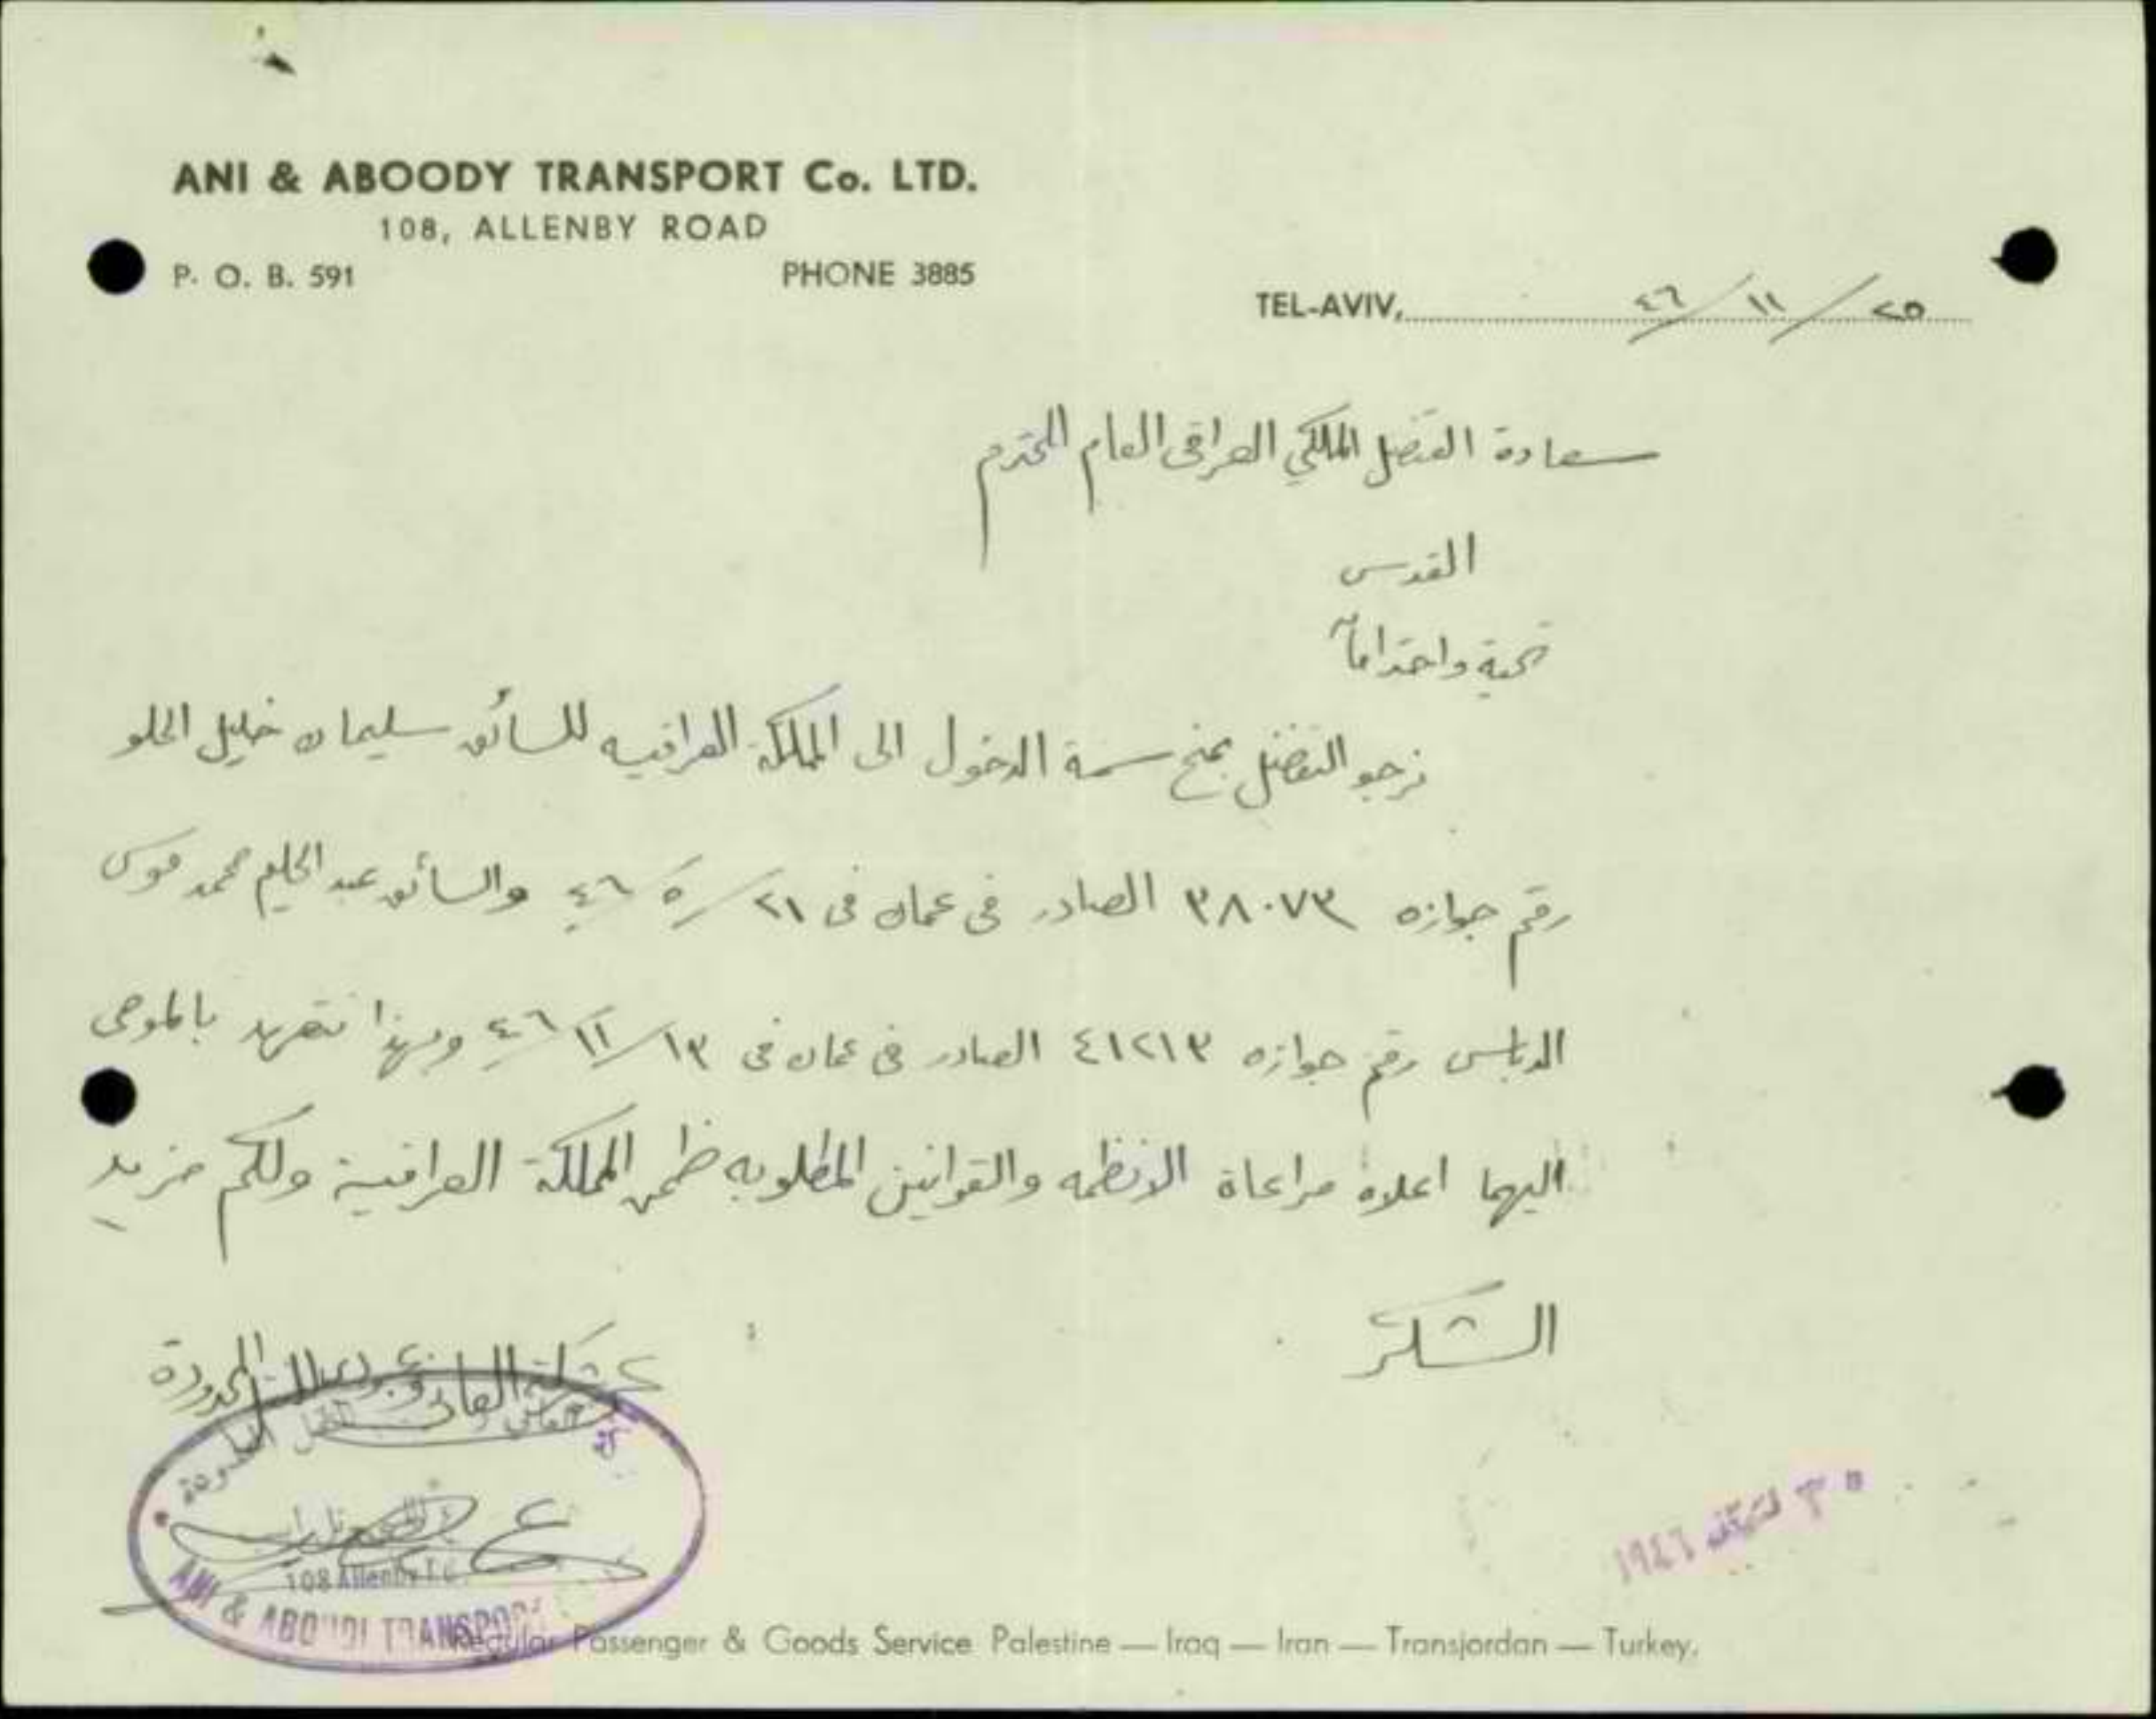 ANI & ABOODY TRANSPORT Co. LTD.
108, ALLENBY ROAD
P. O. B. 591 PHONE 3885
TEL-AVIV, ٢٥/١١/٤٦
سعادة القنصل الملكي العراقي العام المحترم
القدس
تحية واحتراماً
نرجو التفضل بمنح سمة الدخول الى المملكة العراقيه للسائق سليمان خليل الحلو
رقم جوازه ٣٨٠٧٣ الصادر في عمان في ٢١/٥/٤٦ والسائق عبد الحليم محمد موسى
الدبابس رقم جوازه ٤١٢١٣ الصادر في عمان في ١٣/١١/٤٦ وبهذا نتعهد بالموصى
اليهما اعلاه مراعاة الانظمه والقوانين المطلوبه ظمن المملكة العراقية ولكم مزيد
الشكر
شركة العاني وعبودي المحدودة
108 Allenby
ANI & ABOUDI TRANSPORT
١٩٤٦
Regular Passenger & Goods Service Palestine — Iraq — Iran — Transjordan — Turkey.